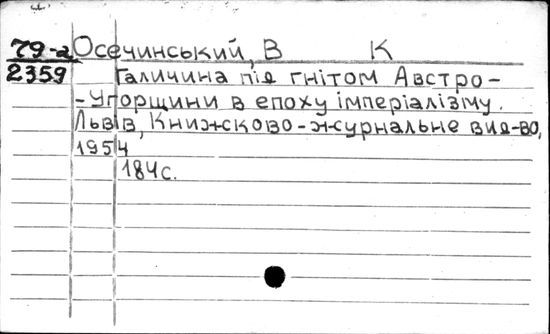 79-2 Осечинський, В К
2359 Галичина під гнітом Австро-
-Угорщини в епоху імперіалізму.
Львів, Книжсково-журнальне вид-во,
1954
184с.